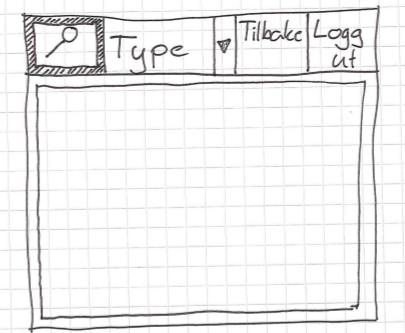 Type
Tilbake
Logg
ut